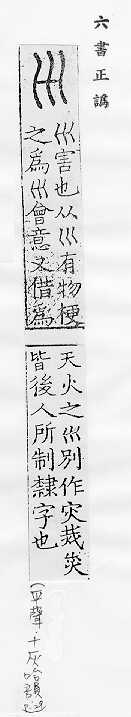 六書正譌
𡿧
𡿧害也从巛有物梗
之為𡿧會意又借為
天火之𡿧別作灾烖災
皆後人所制隸字也
(平聲.十灰咍韻)